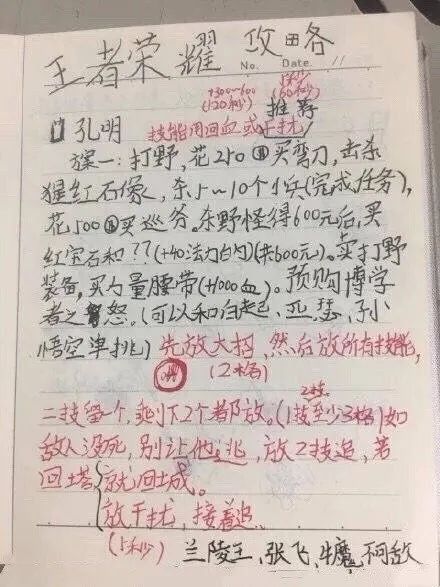 王者荣耀 攻略
No. Date. 11
+300~600 15秒
(120秒) (60秒)
推荐
孔明 技能用回血或干扰
方案一:打野,花250买弯刀,击杀
猩红石像,杀5~10个小兵(完成任务),
花500买巡务。杀野怪得600元后,买
红宝石和??(+40法力白闪)(来600元)。卖打野
装备,买力量腰带(+1000血)。预购博学
者之怒。(可以和白起、亚瑟、孙
悟空单挑)先放大招,然后放所有技能,
(2格)
2技
二技留一个,剩下2个都放。(1技至少3格)如
敌人没死,别让他逃,放2技追,若
回塔就回城。
放干扰,接着追
(15秒) 兰陵王、张飞、牛魔、不可敌